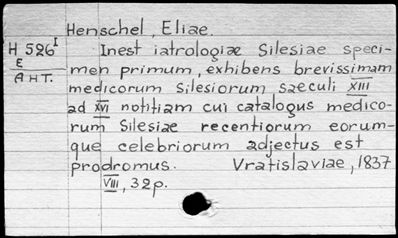 Henschel, Eliae.
H 526 I
E
A H T.
Inest iatrologiæ Silesiae speci-
men primum, exhibens brevissimam
medicorum Silesiorum saeculi XIII
ad XVI notitiam cui catalogus medico-
rum Silesiae recentiorum eorum-
que celebriorum adjectus est
prodromus. Vratislaviae, 1837
VIII, 32 p.